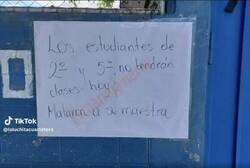 Los estudiantes de
2º y 5º no tendrán
clases hoy
Mataron a su maestra
TikTok